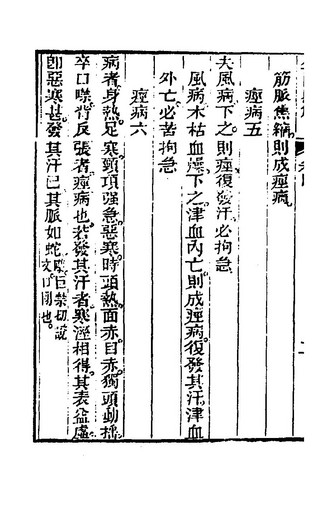 筋脈焦縮則成痙病
痙病五
夫風病下之則痙復發汗必拘急
風病木枯血燥下之津血內亡則成痙病復發其汗津血
外亡必苦拘急
痙病六
病者身熱足寒頸項强急惡寒時頭熱面赤目赤獨頭動搖
卒口噤背反張者痙病也若發其汗者寒溼相得其表益虛
卽惡寒甚發其汗已其脈如蛇噤巨禁切說文口閉也